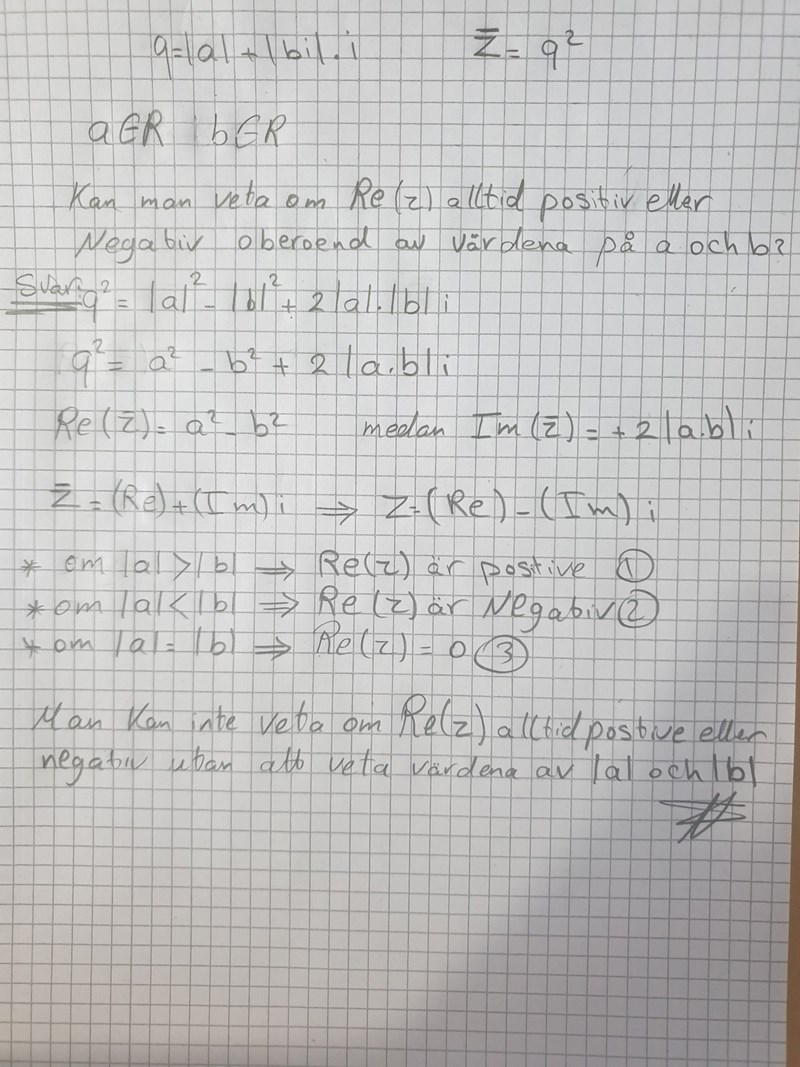 q=|a|+|bi|.i   z̄ = q²
a∈R | b∈R
Kan man veta om Re(z) alltid positiv eller
Negativ oberoend av värdena på a och b?
Svar: q² = |a|² - |b|² + 2|a|.|b| i
q² = a² - b² + 2|a.b| i
Re(z̄) = a² - b²   medan Im(z̄) = +2|a.b| i
z̄ = (Re)+(Im) i ⇒ z=(Re)-(Im) i
* om |a|>|b| ⇒ Re(z) är postive ①
* om |a|<|b| ⇒ Re(z) är Negativ ②
* om |a|=|b| ⇒ Re(z) = 0 ③
Man Kan inte veta om Re(z) alltid postive eller
negativ utan att veta värdena av |a| och |b|